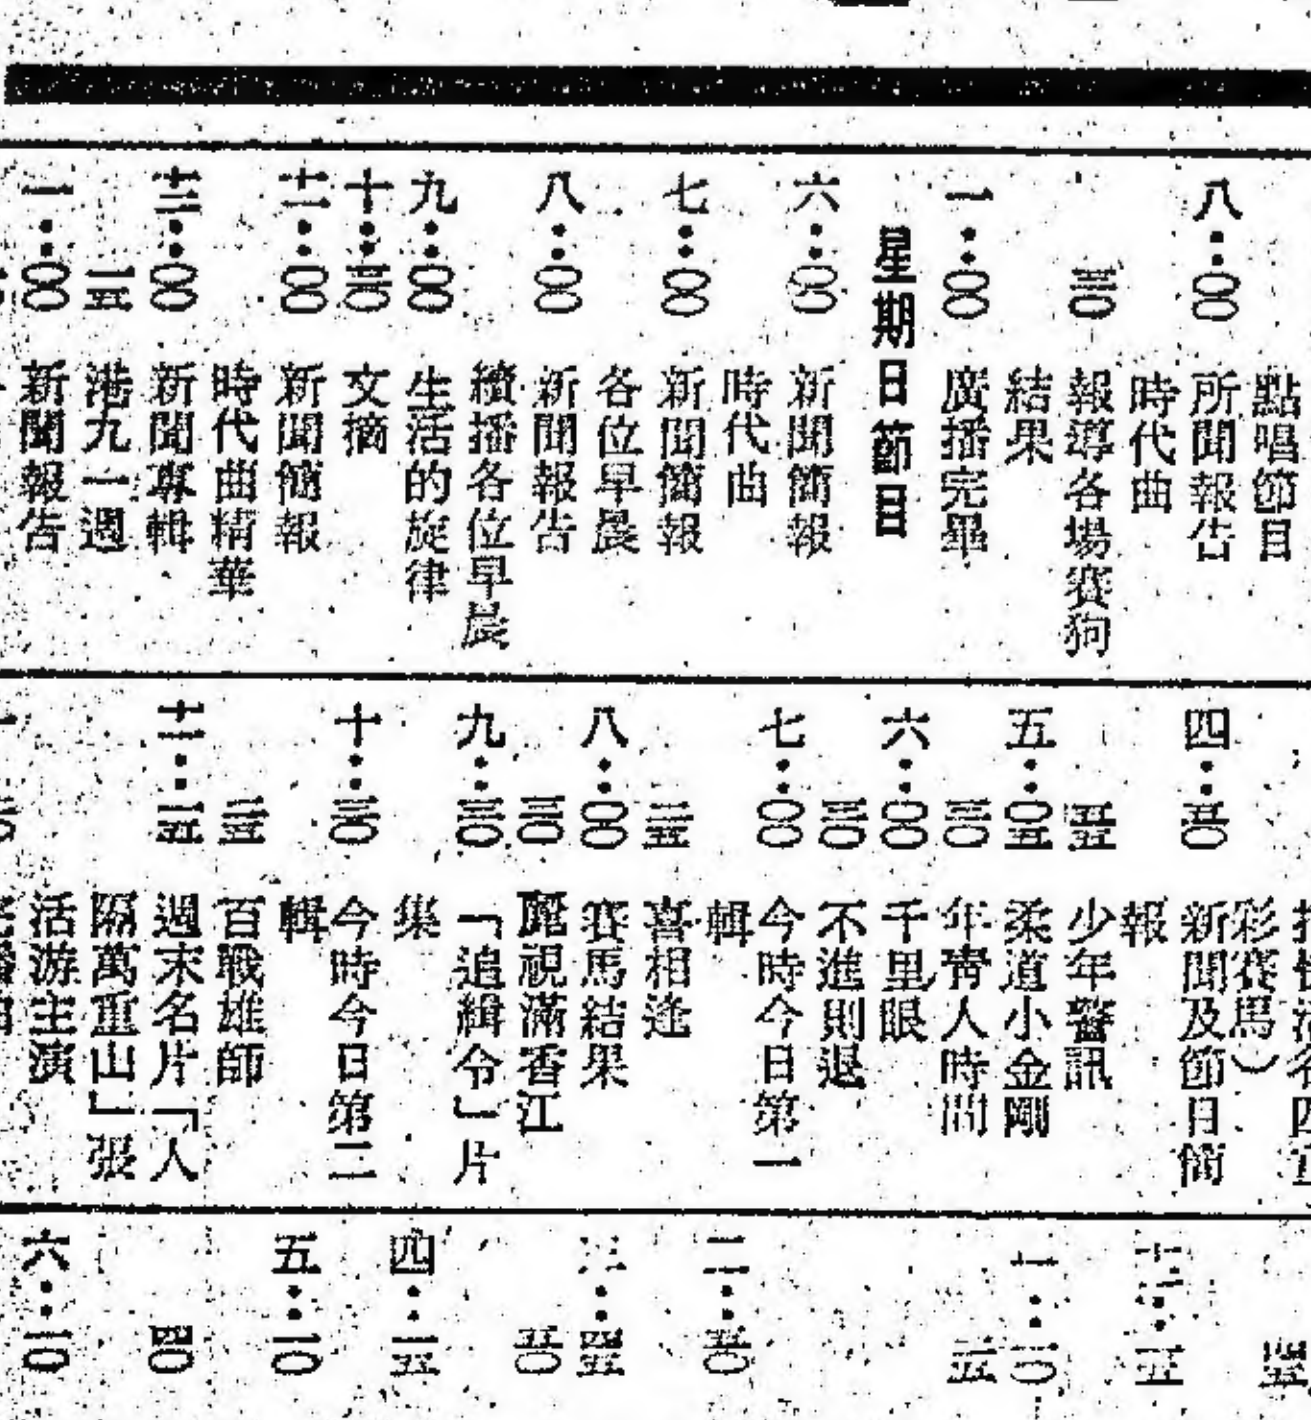 點唱節目
八：〇〇 所聞報告
時代曲
三〇 報導各場賽狗
結果
一：〇〇 廣播完畢
星期日節目
六：〇〇 新聞簡報
時代曲
七：〇〇 新聞簡報
各位早晨
八：〇〇 新聞報告
續播各位早晨
九：〇〇 生活的旋律
十：三〇 文摘
十一：〇〇 新聞簡報
時代曲精華
十二：〇〇 新聞專輯
一五 港九一週
一：〇〇 新聞報告
彩賽馬）
四：五〇 新聞及節目簡
報
五五 少年警訊
五：〇五 柔道小金剛
三〇 年靑人時間
六：〇〇 千里眼
三〇 不進則退
七：〇〇 今時今日第一
輯
二五 喜相逢
八：〇〇 賽馬結果
三〇 麗視滿香江
九：三〇 「追緝令」片
集
十：三〇 今時今日第二
輯
三五 百戰雄師
十二：一五 週末名片「人
隔萬重山」張
活游主演
四五
十二：一五
一：一〇
一五
二：五〇
三：四五
五〇
四：一五
五：一〇
四〇
六：一〇